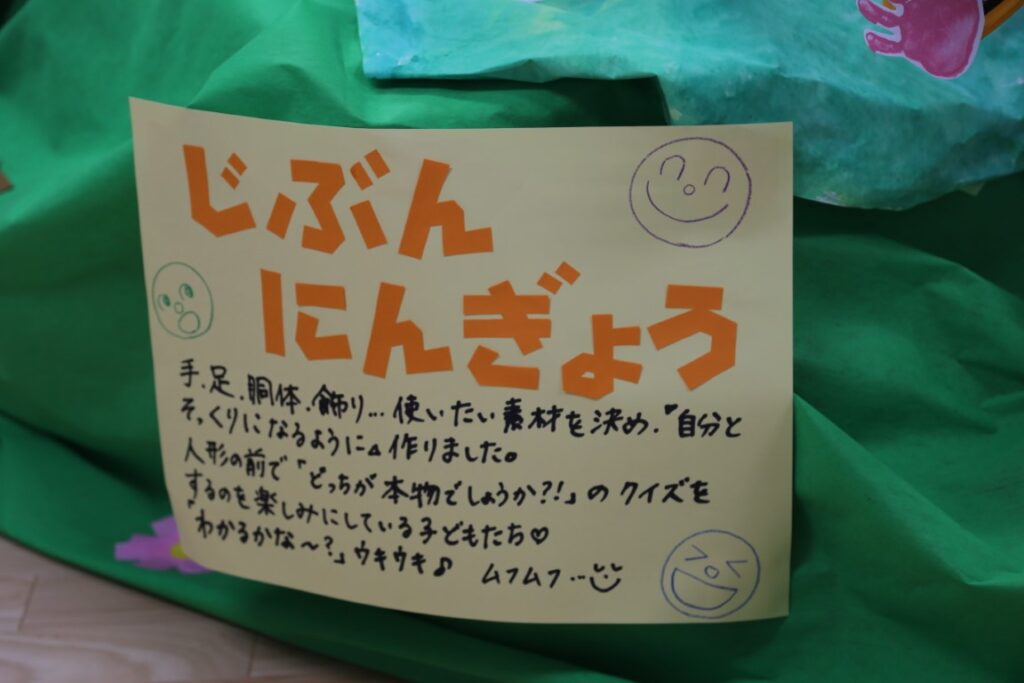 じぶん
にんぎょう
手、足、胴体、飾り…使いたい素材を決め、"自分と
そっくりになるように"作りました。
人形の前で「どっちが本物でしょうか?!」のクイズを
するのを楽しみにしている子どもたち♡
「わかるかな〜?」ウキウキ♪ ムフムフ…